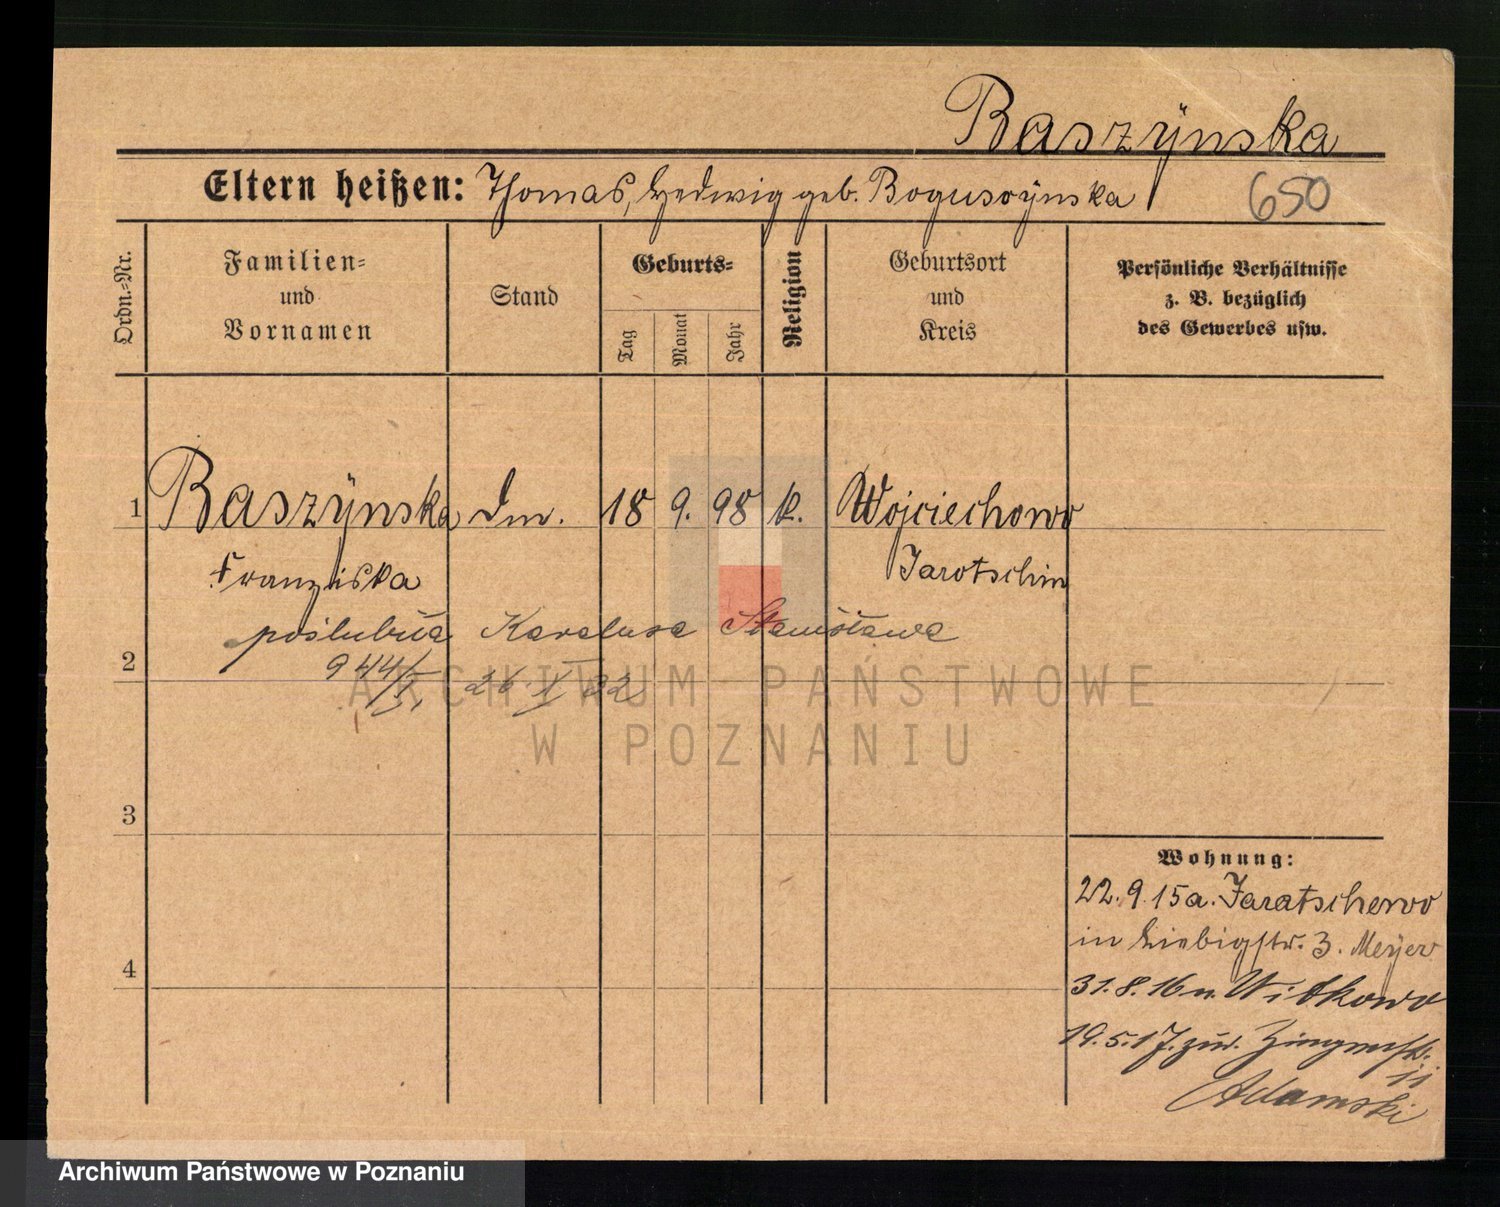 Baszÿnska
Eltern heißen: Thomas, Hedwig geb.
650
Ordn.-Nr.
Familien- und Vornamen
Stand
Geburts-
Tag
Monat
Jahr
Religion
Geburtsort und Kreis
Persönliche Verhältnisse
z. B. bezüglich
des Gewerbes usw.
1 Baszÿnska 18 9. 98 k. Wojciechowo
Franziska Jarotschin
poślubiła Stanisława
2 944/I,
ARCHIWUM PAŃSTWOWE
W POZNANIU
3
Wohnung:
22.9.15 a. Jaratschewo
in Liebigstr. 3. Meÿer
4
31.8.16 n. Witkowo
19.5.17. zur.
Adamski
Archiwum Państwowe w Poznaniu